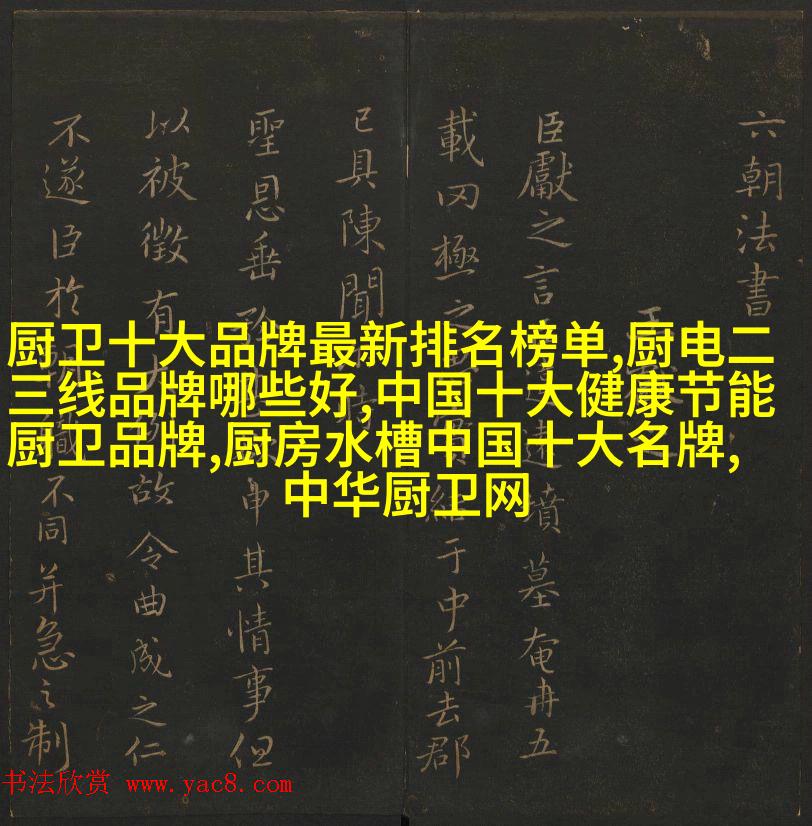 六朝法書
王
臣獻之言違墳墓奄冉五
載罔極之結于中前去郡
已具陳聞
聖恩垂申其情事但
以被徵有故令曲成之仁
不遂臣於不同并急之制
厨卫十大品牌最新排名榜单,厨电二
三线品牌哪些好,中国十大健康节能
厨卫品牌,厨房水槽中国十大名牌,
中华厨卫网
书法欣赏 www.yac8.com